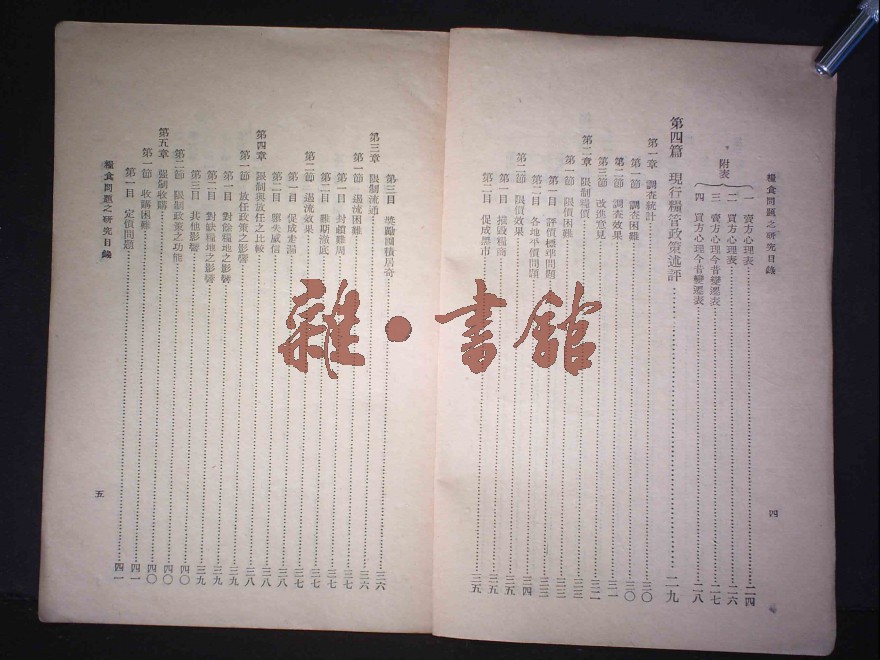 糧食問題之研究目錄
四
附表
一 賣方心理表……二四
二 買方心理表……二六
三 賣方心理今昔變遷表……二七
四 買方心理今昔變遷表……二八
第四篇 現行糧管政策述評……二九
第一章 調查統計……三〇
第一節 調查困難……三〇
第二節 調查效果……三一
第三節 改進意見……三二
第二章 限制糧價……三三
第一節 限價困難……三三
第一目 評價標準問題……三三
第二目 各地平價問題……三三
第二節 限價效果……三四
第一目 摧毀糧商……三五
第二目 促成黑市……三五
第三目 獎勵囤積居奇……三六
第三章 限制流通……三六
第一節 遏流困難……三六
第一目 封鎖難周……三七
第二目 難期澈底……三七
第二節 遏流效果……三七
第一目 促成走漏……三七
第二目 喪失威信……三八
第四章 限制與放任之比較……三八
第一節 放任政策之影響……三八
第一目 對餘糧地之影響……三九
第二目 對缺糧地之影響……三九
第三目 其他影響……三九
第二節 限制政策之功能……四〇
第五章 強制收購……四〇
第一節 收購困難……四〇
第一目 定價問題……四一
糧食問題之研究目錄
五
雜·書館